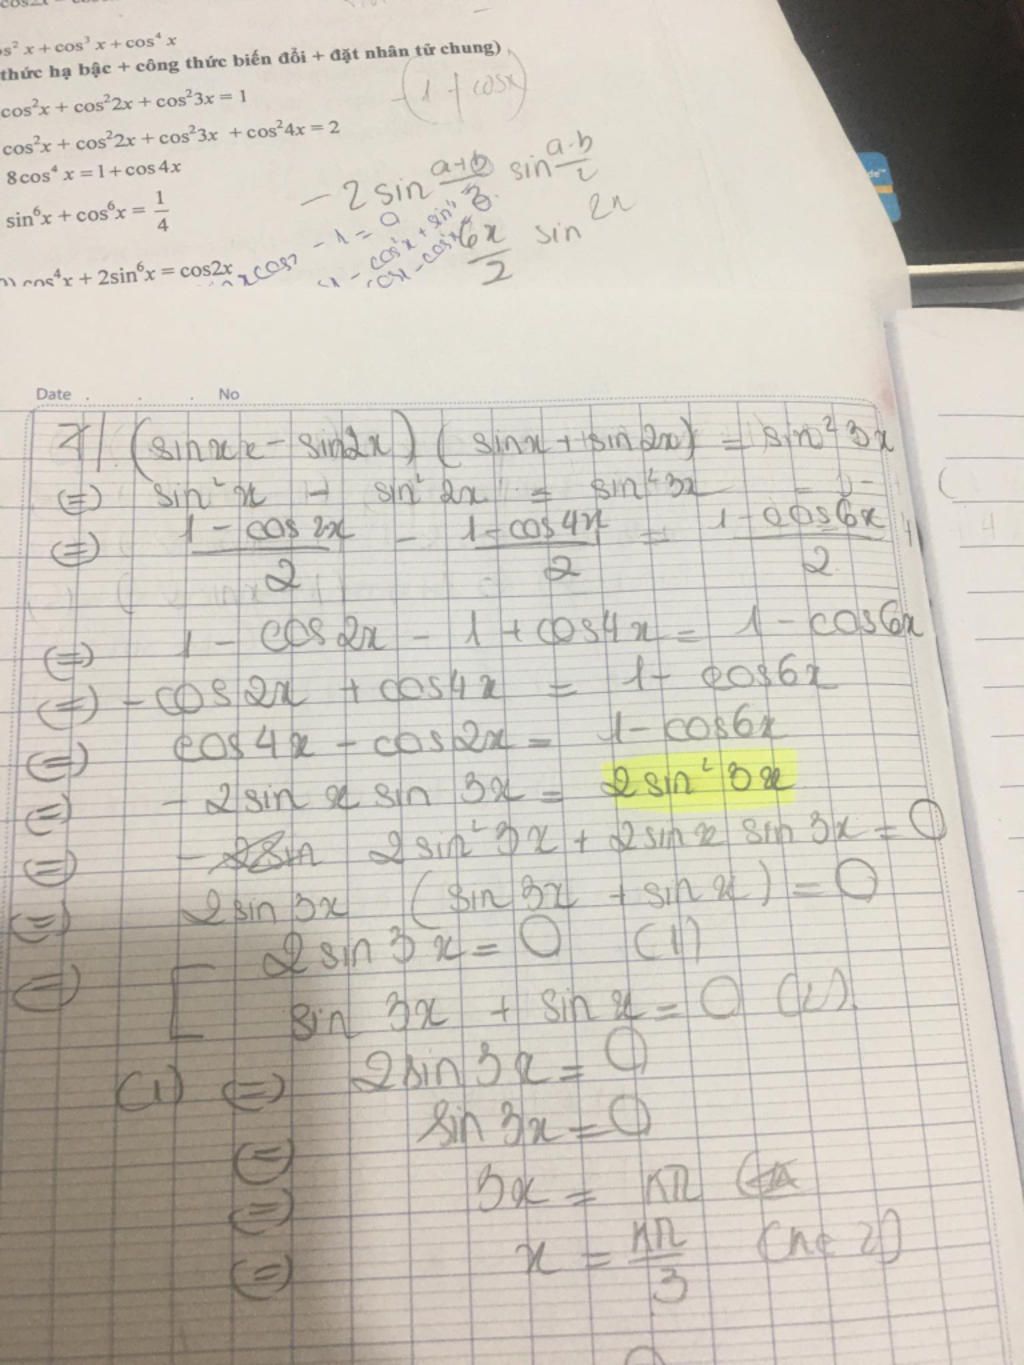 s² x + cos³ x + cos⁴ x
thức hạ bậc + công thức biến đổi + đặt nhân tử chung)
(1 + cosx)
cos²x + cos²2x + cos²3x = 1
cos²x + cos²2x + cos²3x + cos²4x = 2
8cos⁴ x = 1 + cos 4x
sin⁶x + cos⁶x = 1/4
cos⁴x + 2sin⁶x = cos2x
- 2 sin (a+b)/2 sin (a-b)/2
6x/2 sin 2x
- 1 = 0
Date . . . No
7) (sinx - sin2x) (sinx + sin2x) = sin² 3x
(=) sin² x - sin² 2x = sin² 3x
(=) (1 - cos 2x)/2 - (1 - cos4x)/2 = (1 - cos6x)/2
(=) 1 - cos 2x - 1 + cos4x = 1 - cos6x
(=) - cos 2x + cos4x = 1 - cos6x
(=) cos4x - cos2x = 1 - cos6x
(=) - 2 sin x sin 3x = 2 sin² 3x
(=) 2 sin² 3x + 2 sin x sin 3x = 0
(=) 2 sin 3x (sin 3x + sin x) = 0
(=) [ 2 sin 3x = 0 (1)
sin 3x + sin x = 0 (2)
(1) (=) 2 sin 3x = 0
(=) sin 3x = 0
(=) 3x = kπ
(=) x = kπ/3 (k∈Z)